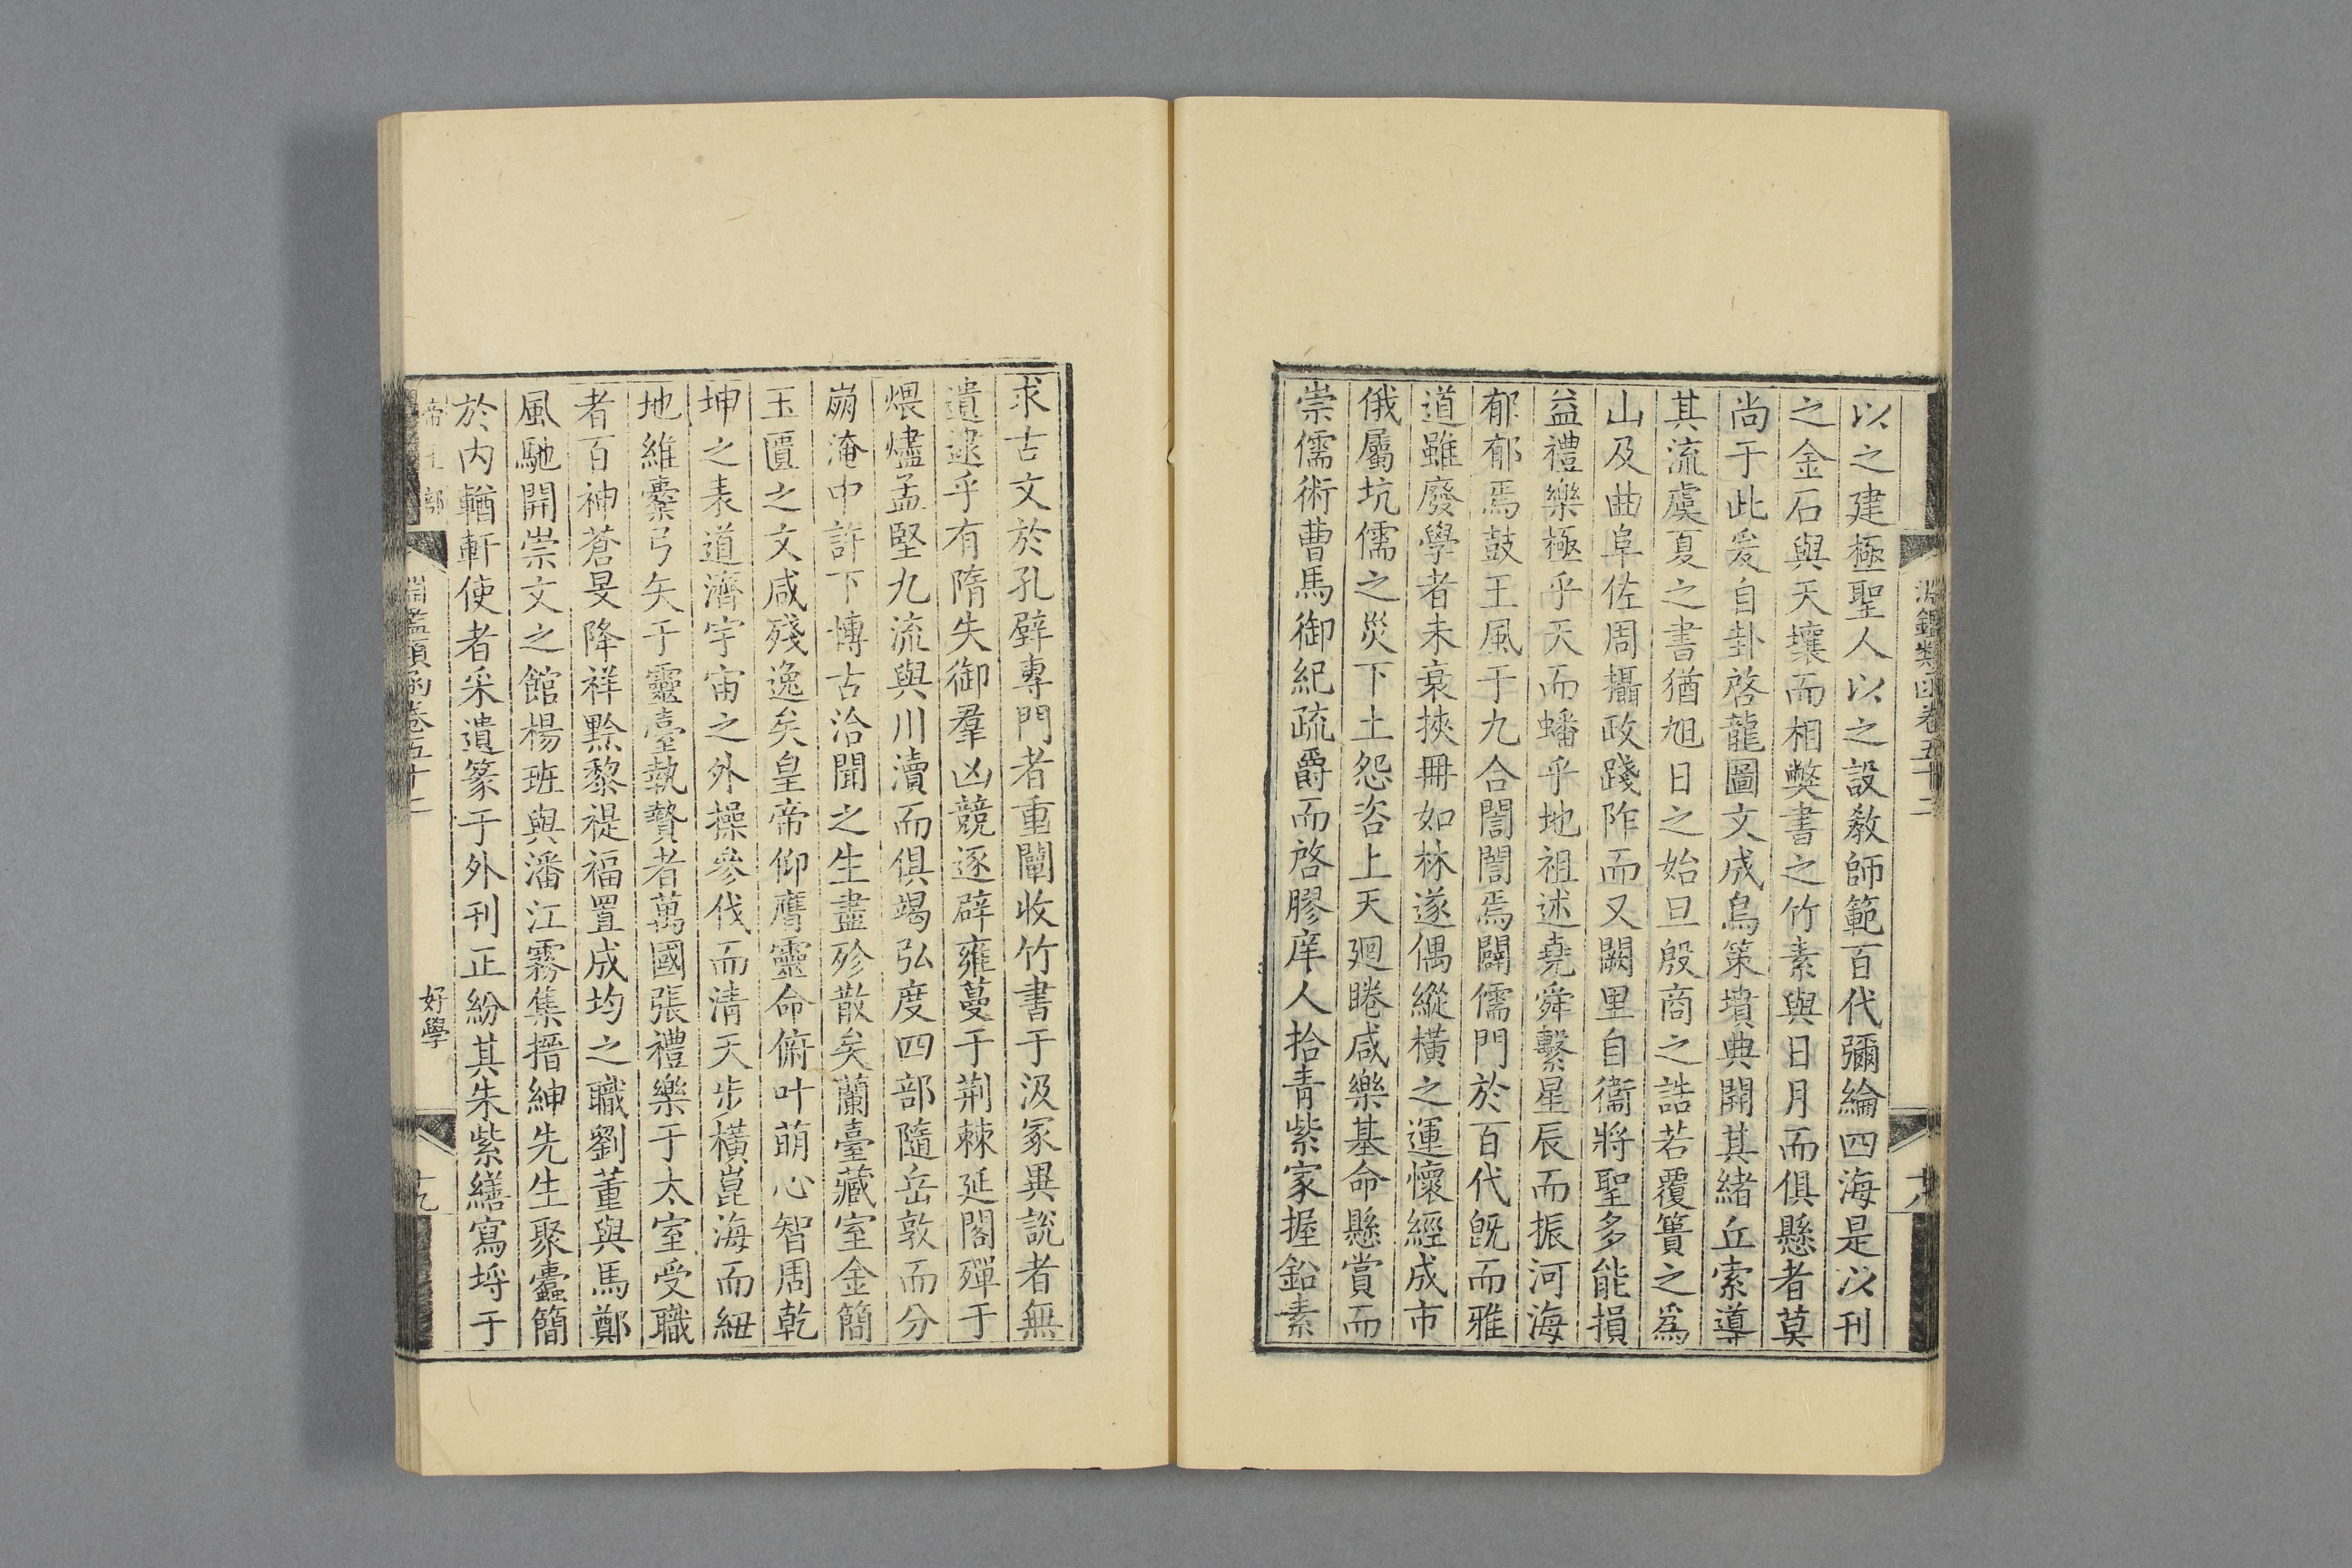 淵鑑類函卷五十二
十八
以之建極聖人以之設敎師範百代彌綸四海是以刊
之金石與天壤而相獘書之竹素與日月而俱懸者莫
尚于此爰自卦啓龍圖文成烏策墳典開其緒丘索導
其流虞夏之書猶旭日之始旦殷商之誥若覆簣之爲
山及曲阜佐周攝政踐阼而又闕里自衞將聖多能損
益禮樂極乎天而蟠乎地祖述堯舜繫星辰而振河海
郁郁焉鼓王風于九合誾誾焉闢儒門於百代旣而雅
道雖廢學者未衰挾冊如林遂偶縱橫之運懷經成市
俄屬坑儒之災下土怨咨上天廻睠咸樂基命懸賞而
崇儒術曹馬御紀疏爵而啓膠庠人拾青紫家握鉛素
求古文於孔壁專門者重闡收竹書于汲冢異說者無
遺逮乎有隋失御羣凶競逐辟雍蔓于荆棘延閣殫于
煨燼孟堅九流與川瀆而俱竭弘度四部隨岳敦而分
崩淹中許下博古洽聞之生盡殄散矣蘭臺藏室金簡
玉匱之文咸殘逸矣皇帝仰膺靈命俯叶萌心智周乾
坤之表道濟宇宙之外操參伐而清天步橫崑海而紐
地維櫜弓矢于靈臺執贄者萬國張禮樂于太室受職
者百神蒼旻降祥黔黎禔福置成均之職劉董與馬鄭
風馳開崇文之館楊班與潘江霧集搢紳先生聚蠹簡
於內輶軒使者采遺篆于外刊正紛其朱紫繕寫埒于
帝王部
淵鑑類函卷五十二
好學
十九